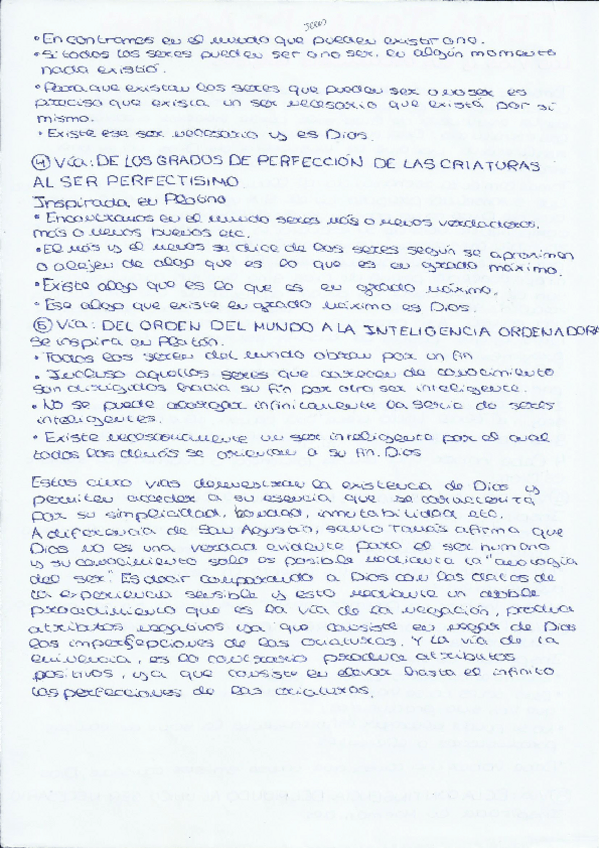 seres
• Encontramos en el mundo que pueden existir o no.
• Si todos los seres pueden ser o no ser, en algún momento
nada existió.
• Para que existan los seres que pueden ser o no ser es
preciso que exista un ser necesario que exista por sí
mismo.
• Existe ese ser necesario y es Dios.
④ Vía: DE LOS GRADOS DE PERFECCIÓN DE LAS CRIATURAS
AL SER PERFECTISIMO
Inspirada en Platón
• Encontramos en el mundo seres más o menos verdaderos,
más o menos buenos etc.
• El más y el menos se dice de los seres según se aproximen
o alejen de algo que es lo que es en grado máximo.
• Existe algo que es lo que es en grado máximo.
• Ese algo que existe en grado máximo es Dios.
⑤ Vía: DEL ORDEN DEL MUNDO A LA INTELIGENCIA ORDENADORA
Se inspira en Platón.
• Todos los seres del mundo obran por un fin
• Incluso aquellos seres que carecen de conocimiento
son dirigidos hacia su fin por otro ser inteligente.
• No se puede alargar infinitamente la serie de seres
inteligentes.
• Existe necesariamente un ser inteligente por el cual
todos los demás se orientan a su fin. Dios
Estas cinco vías demuestran la existencia de Dios y
permiten acceder a su esencia que se caracteriza
por su simplicidad, bondad, inmutabilidad etc.
A diferencia de San Agustín, santo Tomás afirma que
Dios no es una verdad evidente para el ser humano
y su conocimiento solo es posible mediante la "analogía
del ser". Es decir comparando a Dios con los datos de
la experiencia sensible y esto mediante un doble
procedimiento que es la vía de la negación, produce
atributos negativos ya que consiste en negar de Dios
las imperfecciones de las criaturas. Y la vía de la
eminencia, es lo contrario produce atributos
positivos, ya que consiste en elevar hasta el infinito
las perfecciones de las criaturas.